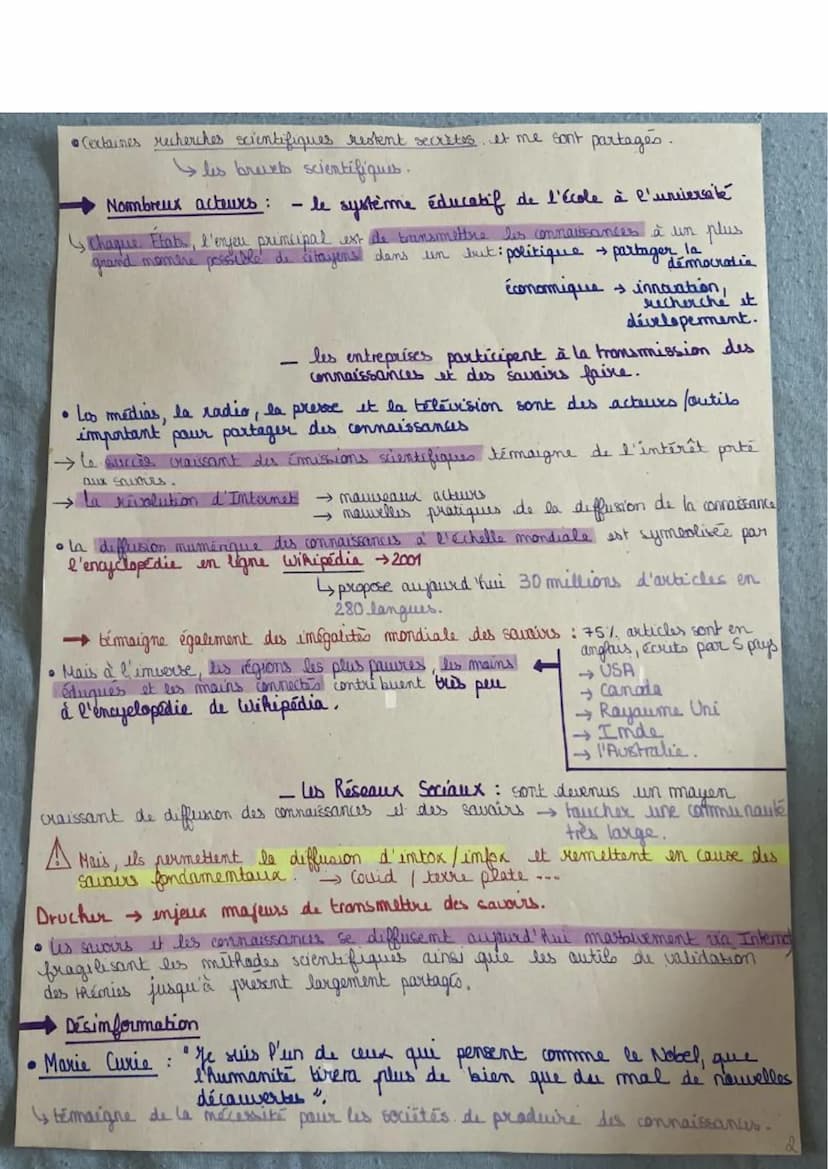 • Certaines recherches scientifiques restent secrètes et ne sont partagés.
↳ les brevets scientifiques.
→ Nombreux acteurs : - le système éducatif de l'école à l'université
↳ Chaque États, l'enjeu principal est de transmettre les connaissances à un plus
grand nombre possible de citoyens dans un but : politique → partager la
démocratie
économique → innovation,
recherche et
dévelopement.
— les entreprises participent à la transmission des
connaissances et des savoirs faire.
• Les médias, la radio, la presse et la télévision sont des acteurs/outils
important pour partager des connaissances
→ Le succès croissant des émissions scientifiques témoigne de l'intérêt porté
aux savoirs.
→ La révolution d'Internet → nouveaux acteurs
→ nouvelles pratiques de la diffusion de la connaissance
• La diffusion numérique des connaissances à l'échelle mondiale est symbolisée par
l'encyclopédie en ligne Wikipédia → 2001
↳ propose aujourd'hui 30 millions d'articles en
280 langues.
→ témoigne également des inégalités mondiale des savoirs : 75% articles sont en
anglais, écrits par 5 pays
→ USA
→ Canada
→ Royaume Uni
→ Inde
→ l'Australie.
• Mais à l'inverse, les régions les plus pauvres, les moins ←
éduqués et les moins connectés contribuent très peu
à l'encyclopédie de Wikipédia.
— Les Réseaux Sociaux : sont devenus un moyen
croissant de diffusion des connaissances et des savoirs → toucher une communauté
très large.
⚠ Mais, ils permettent la diffusion d'intox/infox et remettent en cause des
savoirs fondamentaux. → Covid / terre plate ...
Drucher → enjeux majeurs de transmettre des savoirs.
• Les savoirs et les connaissances se diffusent aujourd'hui massivement via Internet
fragilisant les méthodes scientifiques ainsi que les outils de validation
des théories jusqu'à présent largement partagés.
→ Désinformation
• Marie Curie : "Je suis l'un de ceux qui pensent comme le Nobel, que
l'humanité tirera plus de bien que du mal de nouvelles
découvertes".
↳ témoigne de la nécessité pour les sociétés de produire des connaissances.
2